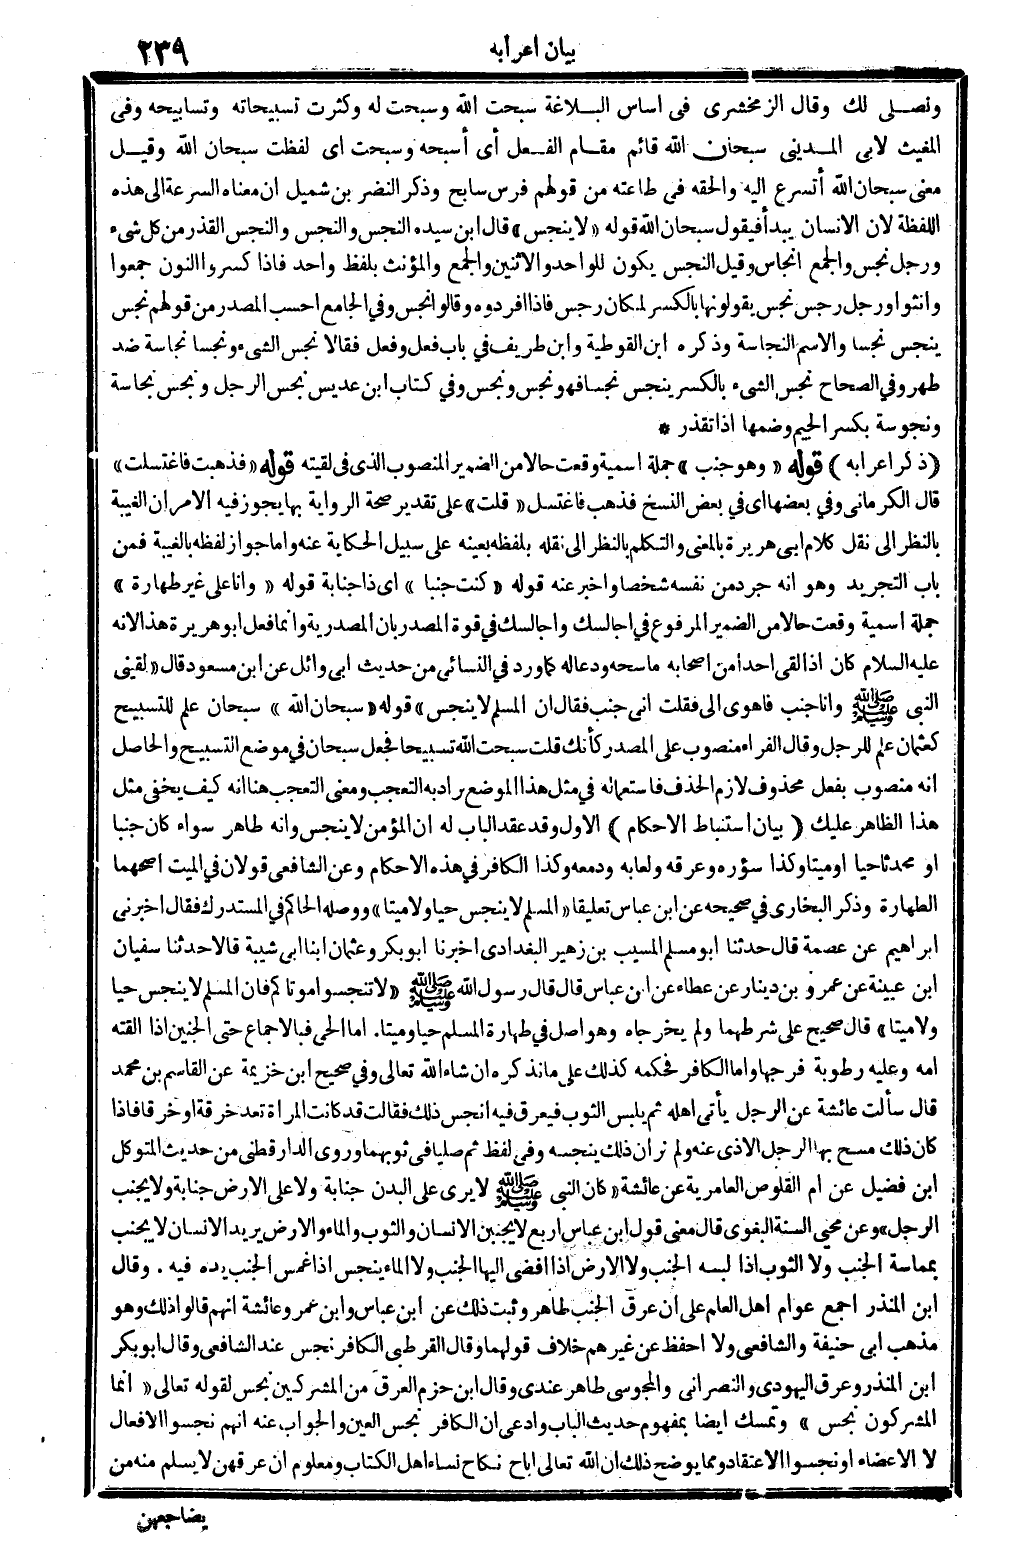 بيان اعرابه
٢٣٩
ونصلى لك وقال الزمخشرى فى اساس البلاغة سبحت الله وسبحت له وكثرت تسبيحاته وتسابيحه وفى
المغيث لابى المدينى سبحان الله قائم مقام الفعل أى أسبحه وسبحت اى لفظت سبحان الله وقيل
معنى سبحان الله أتسرع اليه والحقه فى طاعته من قولهم فرس سابح وذكر النضر بن شميل ان معناه السرعة الى هذه
اللفظة لان الانسان يبدأ فيقول سبحان الله قوله «لا ينجس» قال ابن سيده النجس والنجس والنجس القذر من كل شىء
ورجل نجس والجمع انجاس وقيل النجس يكون للواحد والاثنين والجمع والمؤنث بلفظ واحد فاذا كسروا النون جمعوا
وانثوا ورجل رجس نجس يقولونها بالكسر لمكان رجس فاذا افردوه وقالوا نجس وفي الجامع احسب المصدر من قولهم نجس
ينجس نجسا والاسم النجاسة وذكره ابن القوطية وابن طريف في باب فعل وفعل فقالا نجس الشىء ونجسا نجاسة ضد
طهر وفي الصحاح نجس الشىء بالكسر ينجس نجسا فهو نجس ونجس وفي كتاب ابن عديس نجس الرجل ونجس نجاسة
ونجوسة بكسر الجيم وضمها اذا تقذر *
(ذكر اعرابه) قوله «وهو جنب» جملة اسمية وقعت حالا من الضمير المنصوب الذى فى لقيته قوله «فذهبت فاغتسلت»
قال الكرمانى وفي بعضها اى في بعض النسخ فذهب فاغتسل «قلت» على تقدير صحة الرواية بها يجوز فيه الامران الغيبة
بالنظر الى نقل كلام ابى هريرة بالمعنى والتكلم بالنظر الى نقله بلفظه بعينه على سبيل الحكاية عنه واما جواز لفظه بالغيبة فمن
باب التجريد وهو انه جرد من نفسه شخصا واخبر عنه قوله «كنت جنبا» اى ذا جنابة قوله «وانا على غير طهارة»
جملة اسمية وقعت حالا من الضمير المرفوع في اجالسك واجالسك في قوة المصدر بان المصدرية وانما فعل ابو هريرة هذا لانه
عليه السلام كان اذا لقى احدا من اصحابه ماسحه ودعا له كما ورد في النسائى من حديث ابى وائل عن ابن مسعود قال «لقينى
النبى ﷺ وانا جنب فاهوى الى فقلت انى جنب فقال ان المسلم لا ينجس» قوله «سبحان الله» سبحان علم للتسبيح
كعثمان علم للرجل وقال الفراء منصوب على المصدر كأنك قلت سبحت الله تسبيحا فجعل سبحان في موضع التسبيح والحاصل
انه منصوب بفعل محذوف لازم الحذف فاستعماله في مثل هذا الموضع يراد به التعجب ومعنى التعجب هنا انه كيف يخفى مثل
هذا الظاهر عليك (بيان استنباط الاحكام) الاول وقد عقد الباب له ان المؤمن لا ينجس وانه طاهر سواء كان جنبا
او محدثا حيا او ميتا وكذا سؤره وعرقه ولعابه ودمعه وكذا الكافر في هذه الاحكام وعن الشافعى قولان في الميت اصحهما
الطهارة وذكر البخارى في صحيحه عن ابن عباس تعليقا «المسلم لا ينجس حيا ولا ميتا» ووصله الحاكم في المستدرك فقال اخبرنى
ابراهيم عن عصمة قال حدثنا ابو مسلم المسيب بن زهير البغدادى اخبرنا ابو بكر وعثمان ابنا ابى شيبة قالا حدثنا سفيان
ابن عيينة عن عمرو بن دينار عن عطاء عن ابن عباس قال قال رسول الله ﷺ «لا تنجسوا موتاكم فان المسلم لا ينجس حيا
ولا ميتا» قال صحيح على شرطهما ولم يخرجاه وهو اصل في طهارة المسلم حيا وميتا. اما الحى فبالاجماع حتى الجنين اذا القته
امه وعليه رطوبة فرجها واما الكافر فحكمه كذلك على ما نذكره ان شاء الله تعالى وفي صحيح ابن خزيمة عن القاسم بن محمد
قال سألت عائشة عن الرجل يأتى اهله ثم يلبس الثوب فيعرق فيه انجس ذلك فقالت قد كانت المراة تعد خرقة او خرقا فاذا
كان ذلك مسح بها الرجل الاذى عنه ولم نر ان ذلك ينجسه وفى لفظ ثم صليا فى ثوبهما وروى الدارقطنى من حديث المتوكل
ابن فضيل عن ام القلوص العامرية عن عائشة «كان النبى ﷺ لا يرى على البدن جنابة ولا على الارض جنابة ولا يجنب
الرجل» وعن محيى السنة البغوى قال معنى قول ابن عباس اربع لا يجنبن الانسان والثوب والماء والارض يريد الانسان لا يجنب
بمماسة الجنب ولا الثوب اذا لبسه الجنب ولا الارض اذا افضى اليها الجنب ولا الماء ينجس اذا غمس الجنب يده فيه . وقال
ابن المنذر اجمع عوام اهل العلم على ان عرق الجنب طاهر وثبت ذلك عن ابن عباس وابن عمر وعائشة انهم قالوا ذلك وهو
مذهب ابى حنيفة والشافعى ولا احفظ عن غيرهم خلاف قولهما وقال القرطبى الكافر نجس عند الشافعى وقال ابو بكر
ابن المنذر وعرق اليهودى والنصرانى والمجوسى طاهر عندى وقال ابن حزم العرق من المشركين نجس لقوله تعالى «انما
المشركون نجس» وتمسك ايضا بمفهوم حديث الباب وادعى ان الكافر نجس العين والجواب عنه انهم نجسوا الافعال
لا الاعضاء او نجسوا الاعتقاد ومما يوضح ذلك ان الله تعالى اباح نكاح نساء اهل الكتاب ومعلوم ان عرقهن لا يسلم منه من
يضاجعهن